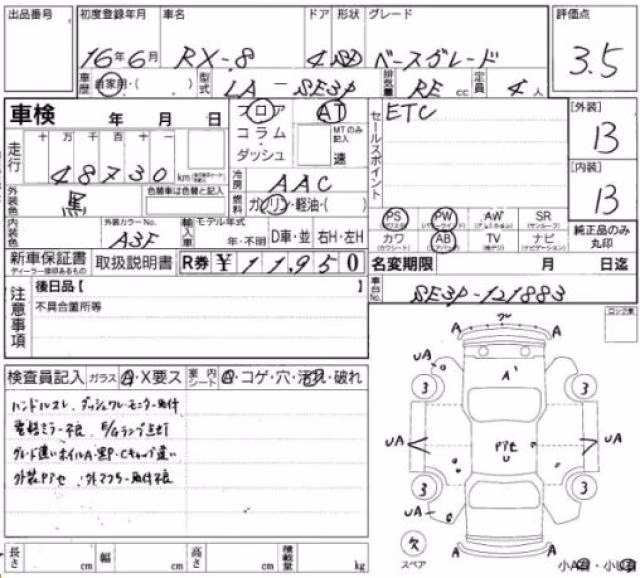 出品番号 初度登録年月 車名 ドア 形状 グレード 評価点
16年6月 RX-8 4 SD ベースグレード 3.5
車歴 自家用・( ) 型式 LA-SE3P 排気量 RE cc 定員 4人
車検 年 月 日 フロア・コラム・ダッシュ AT MTのみ記入 速 セールスポイント ETC [外装] B
走行 十 万 千 百 十 一
48730 km 冷房 AAC [内装] B
外装色 黒 色替車は色替と記入 燃料 ガソリン・軽油・( )
PS PW AW SR (サンルーフ)
内装色 外装カラーNo. A3F 輸入車 モデル年式 年・不明 D車・並 右H・左H カワ (カワシート) AB (エアバッグ) TV ナビ (ナビゲーション) 純正品のみ丸印
新車保証書 ディーラー捺印あるもの 取扱説明書 R券 ¥11,950 名変期限 月 日迄
注意事項 後日品【 】 車台No. SE3P-121883
不具合箇所等 ロック車
検査員記入 ガラス A・X要ス 室内シート コゲ・穴・汚れ・破れ
ハンドルスレ、ダッシュワレ・モニター取付
電格ミラー不良、E/Gランプ点灯
グレード違いホイルA・黒P・Cキャップ違い
外装Pアセ
A ワレ A
UA A'
3 3
UA Pアセ U UA
3 3
UA
欠 スペア A A 小A・小U
長さ cm 幅 cm 高さ cm 積載量 kg